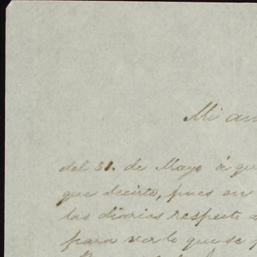 Mi am
del 31. de Mayo á qu
que decirte, pues en
los diarios respecto a
para ver lo que se p